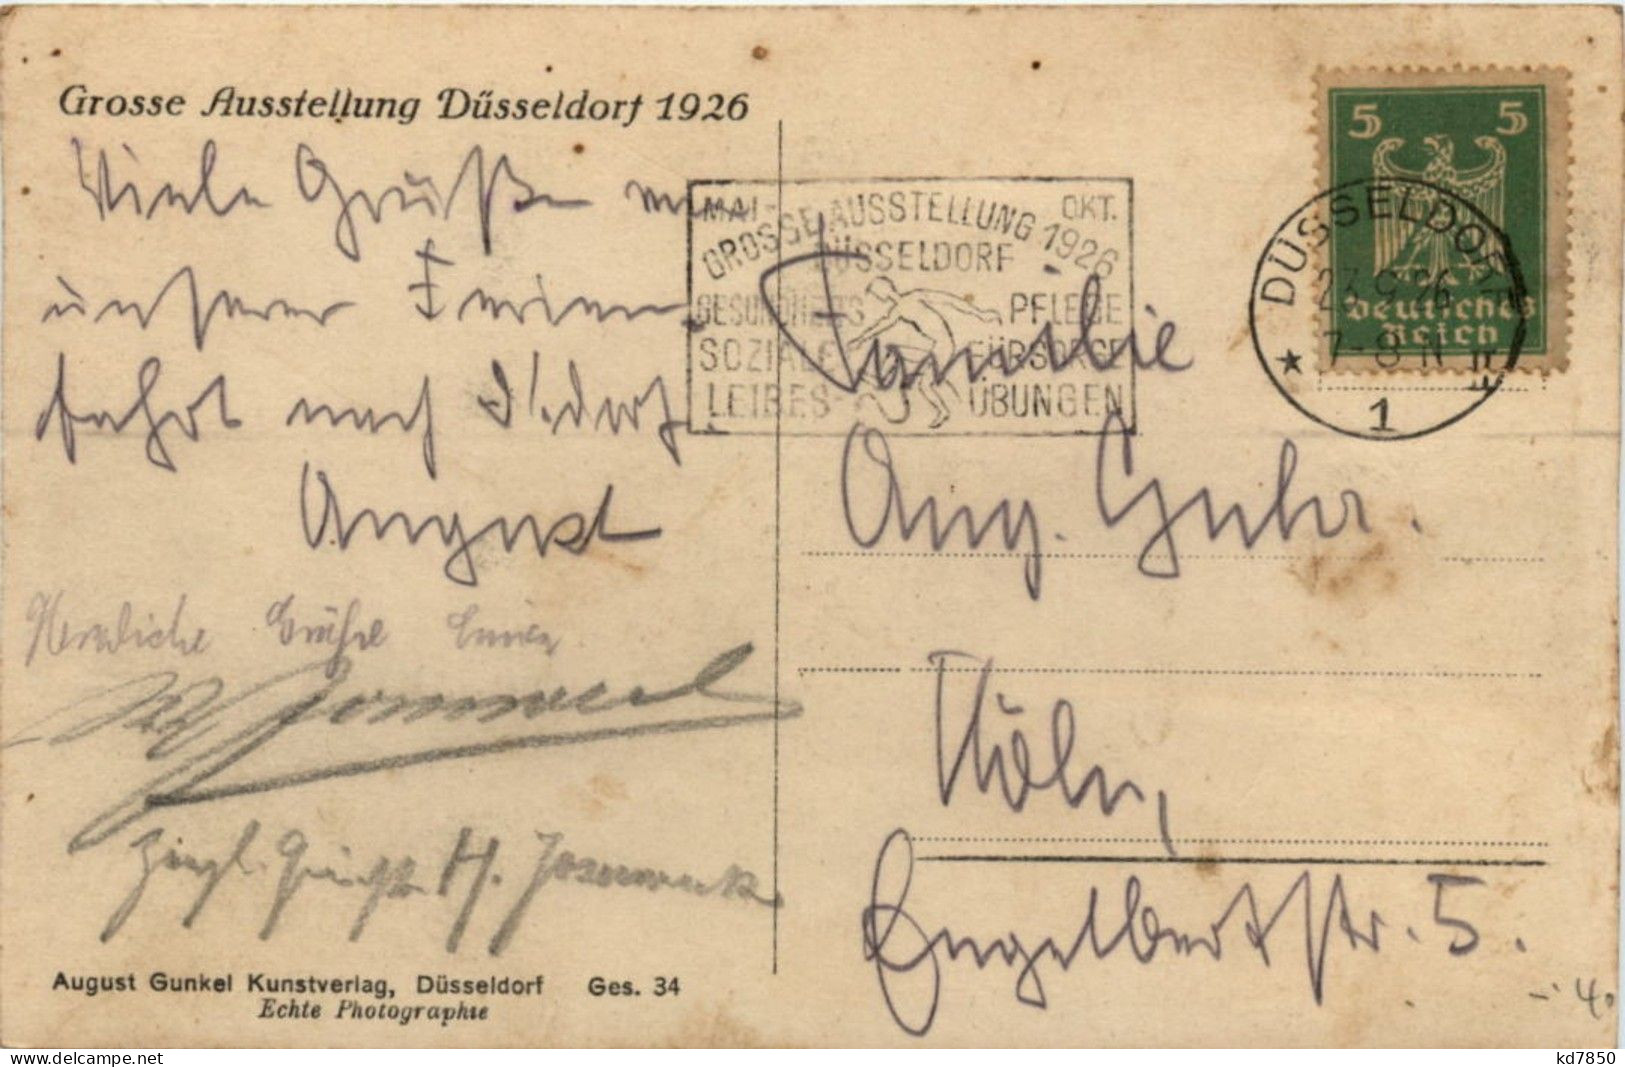 Grosse Ausstellung Düsseldorf 1926
Viele Grüße von
unserer Ferien-
fahrt nach D'dorf.
August
Herzliche Grüße
H.
August Gunkel Kunstverlag, Düsseldorf Ges. 34
Echte Photographie
MAI - OKT.
GROSSE AUSSTELLUNG 1926
DÜSSELDORF
GESUNDHEITS PFLEGE
SOZIALE FÜRSORGE
LEIBES ÜBUNGEN
5 5
Deutsches
Reich
DÜSSELDORF
23.9.26
7-8 N
1
Familie
Aug. Guhr.
Köln,
Engelbertstr. 5.
kd7850
delcampe.net